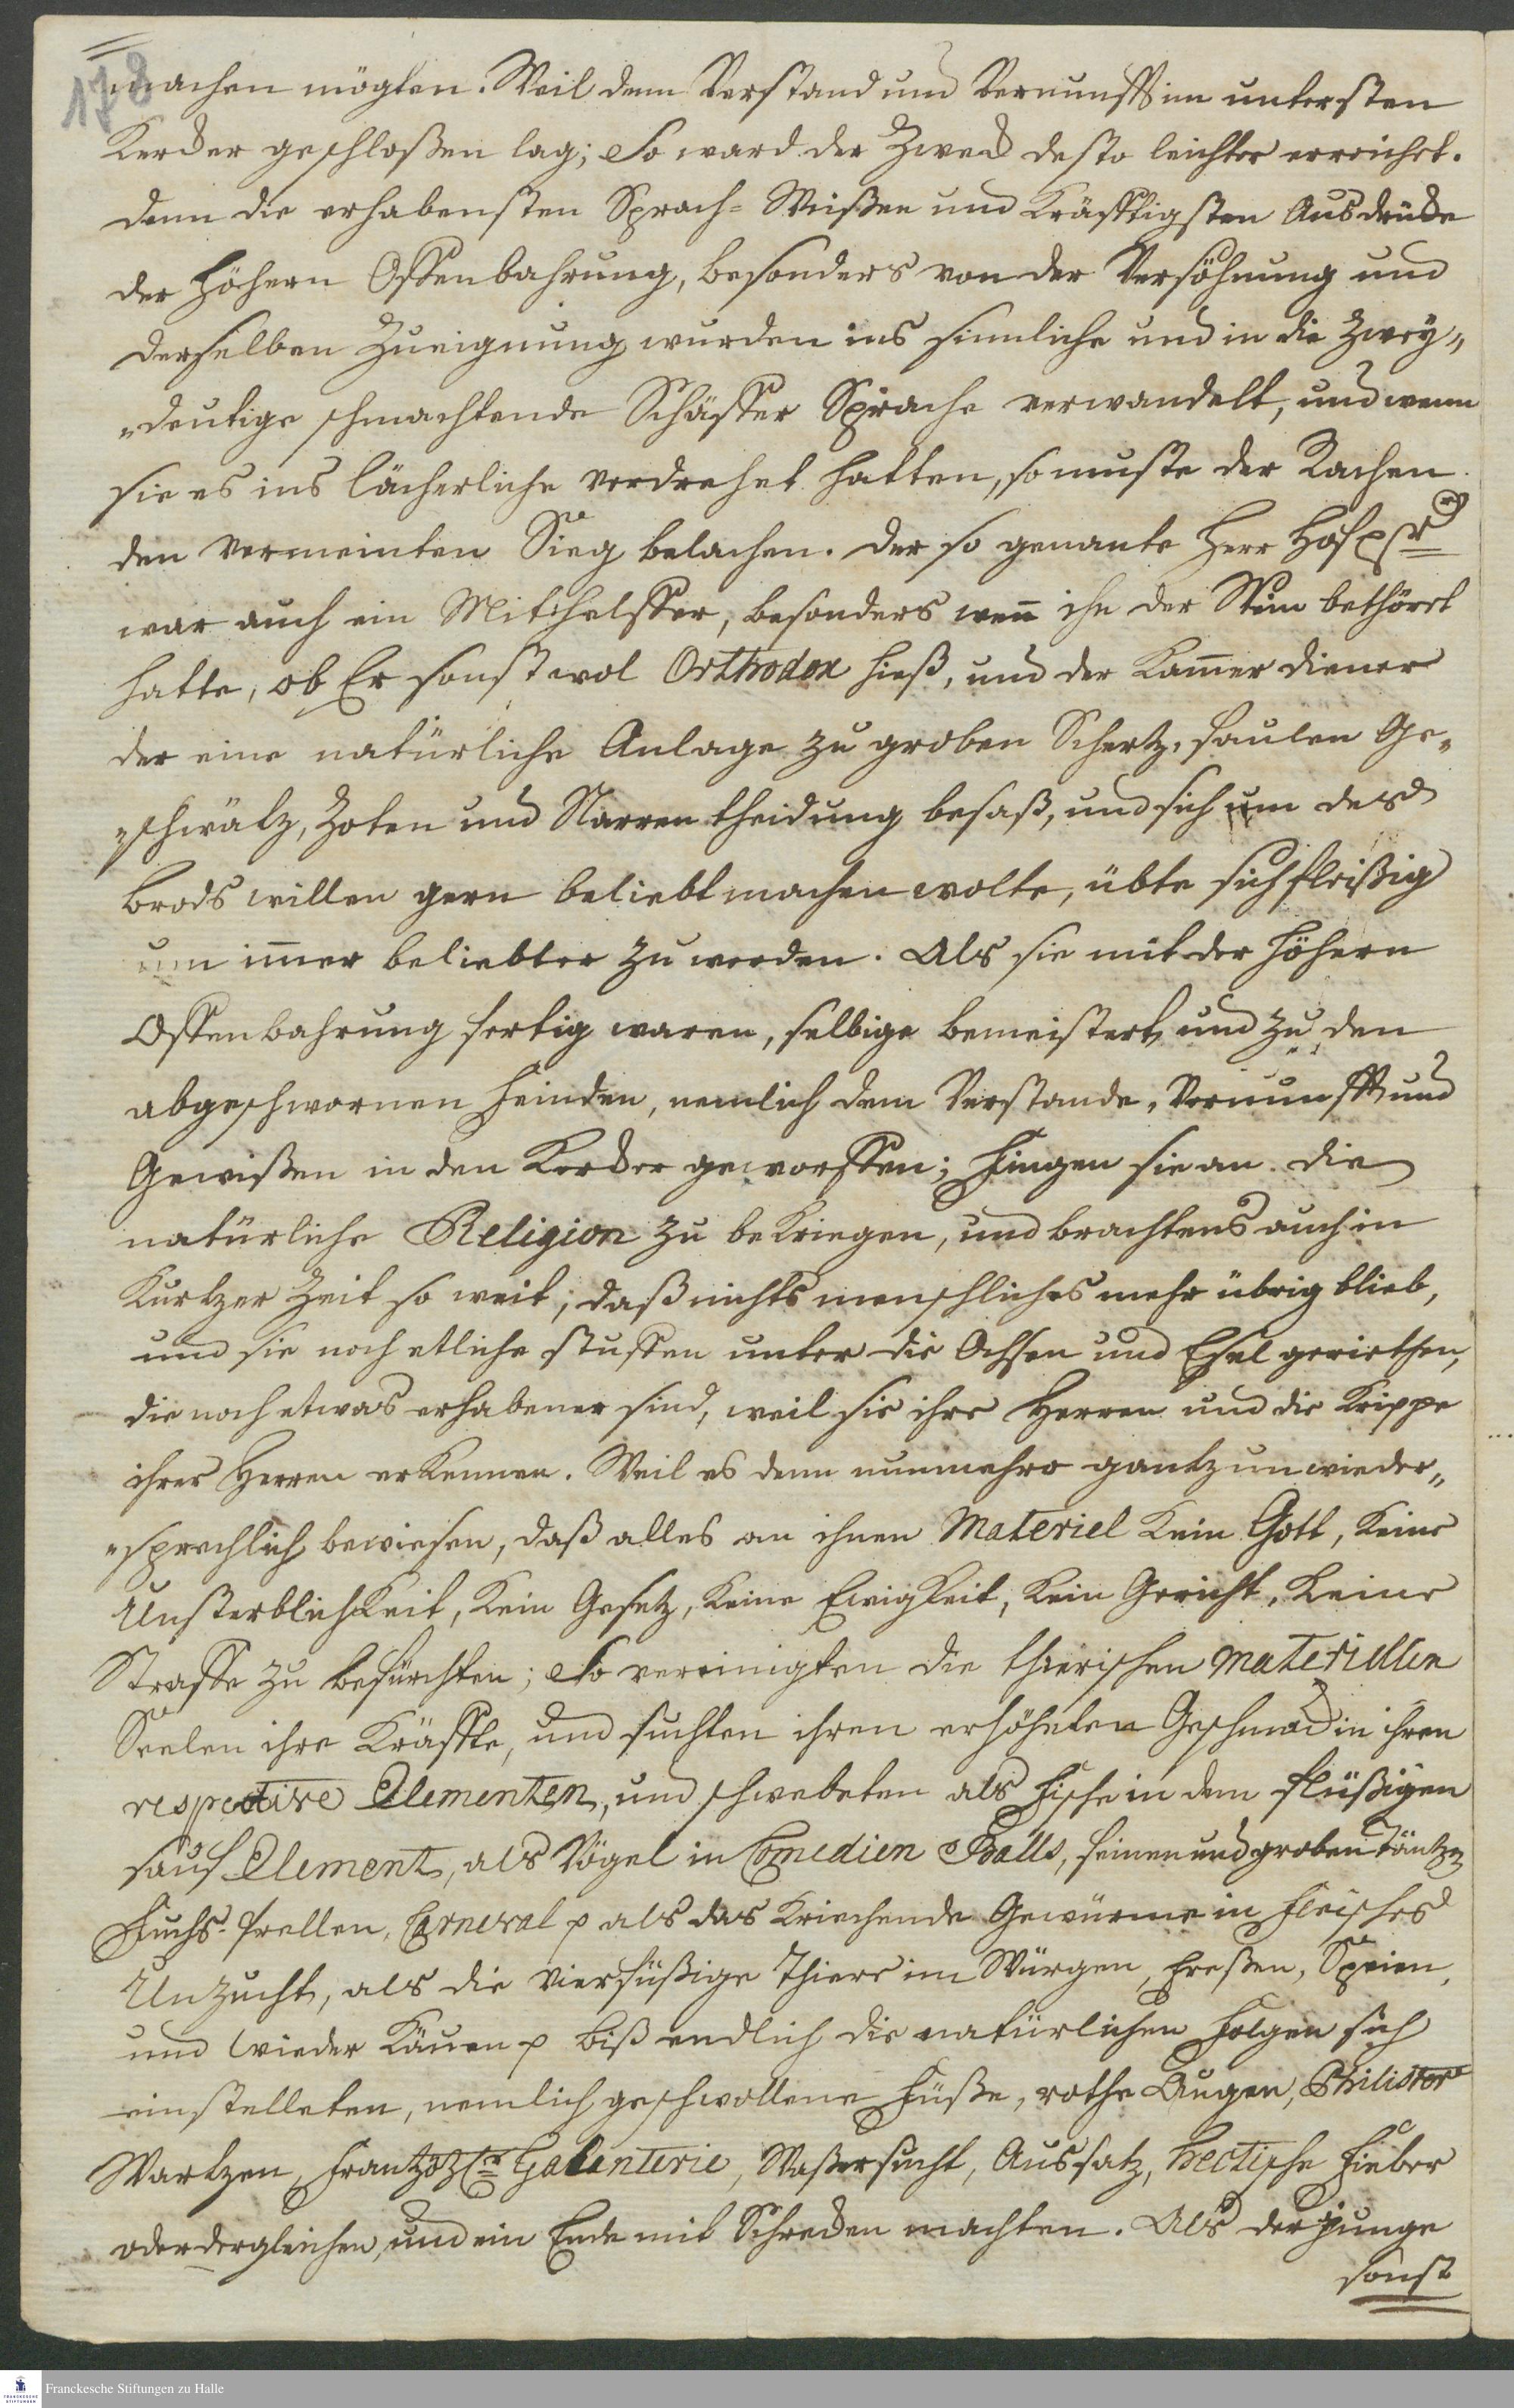 178
machen mögten. Weil denn Verstand und Vernunfft im untersten
Kercker geschloßen lag; So ward der Zweck desto leichter erreichet.
denn die erhabensten Sprach-Weißen und kräfftigsten Ausdrücke
der höhern Offenbahrung, besonders von der Versöhnung und
derselben Zueignung wurden ins sinnliche und in die Zwey„
„deutige schmachtende Schäffer Sprache verwandelt, und wenn
sie es ins lächerliche verdrehet hatten, so muste der Rachen
den vermeinten Sieg belachen. der so genante Herr Hofpr
war auch ein Mithelffer, besonders wen̄ ihn der Wein bethöret
hatte, ob Er sonst wol Orthodox hieß, und der Kam̄er diener
der eine natürliche Anlage zu groben Schertz, faulen Ge„
„schwätz, Zoten und Narrentheidung besaß, und sich um des
brods willen gern beliebt machen wolte, übte sich fleißig
um im̄er beliebter zu werden. Als sie mit der höhern
Offenbahrung fertig waren, selbige bemeistert und zu den
abgeschwornen Feinden, nemlich dem Verstande, Vernunfft und
Gewißen in den Kercker geworffen; Fingen sie an die
natürliche Religion zu bekriegen, und brachtens auch in
kurtzer Zeit so weit, daß nichts menschliches mehr übrig blieb,
und sie noch etliche stuffen unter die Ochsen und Esel geriethen,
die noch etwas erhabener sind, weil sie ihre Herren und die Krippe
ihrer Herren erkennen. Weil es denn nunmehro gantz unwieder„
„sprechlich bewiesen, daß alles an ihnen Materiel kein Gott, keine
Unsterblichkeit, kein Gesetz, keine Ewigkeit, kein Gericht, keine
Straffe zu befürchten; So vereinigten die thierischen materiellen
Seelen ihre Kräffte, und suchten ihren erhöheten Geschmack in ihren
respective Elementen, und schwebeten als Fische in dem flüßigen
sauf Element, als Vögel in Comedien Balls, feinen und groben Täntzen
Fuchs-Prellen, Carneval p als das kriechende Gewürme in Fleisches
Unzucht, als die vierfüßige Thiere im Würgen, Freßen, Speien,
und wieder Käuen p biß endlich die natürlichen Folgen sich
einstelleten, nemlich geschwollene Füße, rothe Augen, Philister
Wartzen, Frantzözsr Galanterie, Waßersucht, Aussatz, hectische Fieber
oder dergleichen, und ein Ende mit Schrecken machten. Als der junge
sonst
Franckesche Stiftungen zu Halle